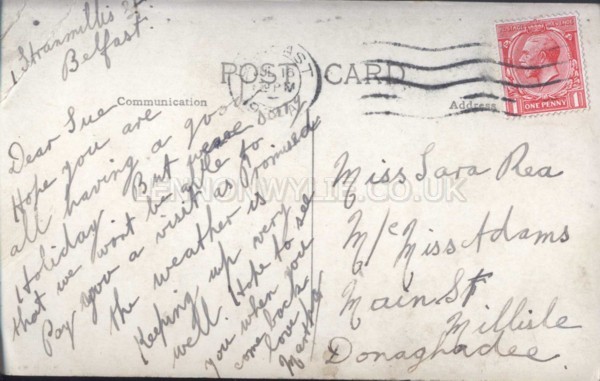 1 Stranmillis St
Belfast.
POST CARD
Communication
Address
BELFAST
PM
POSTAGE REVENUE
ONE PENNY
1
Dear Sue
Hope you are
all having a good
Holiday. But sorry
that we wont be able to
Pay you a visit as Promised
the weather is
Keeping up very
well. Hope to see
you when you
come back
love
Martha
Miss Sara Rea
M/c Miss Adams
Main St
Millisle
Donaghadee.
LENNONWYLIE.CO.UK